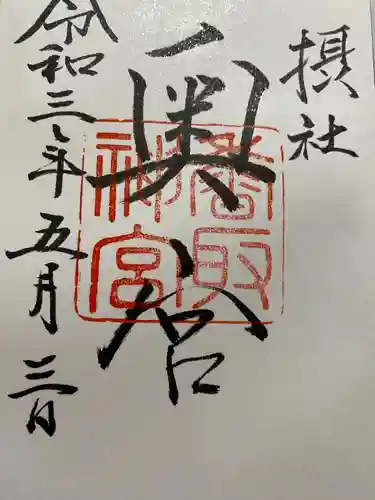 摂社
奥宮
香取
神宮
令和三年五月三日